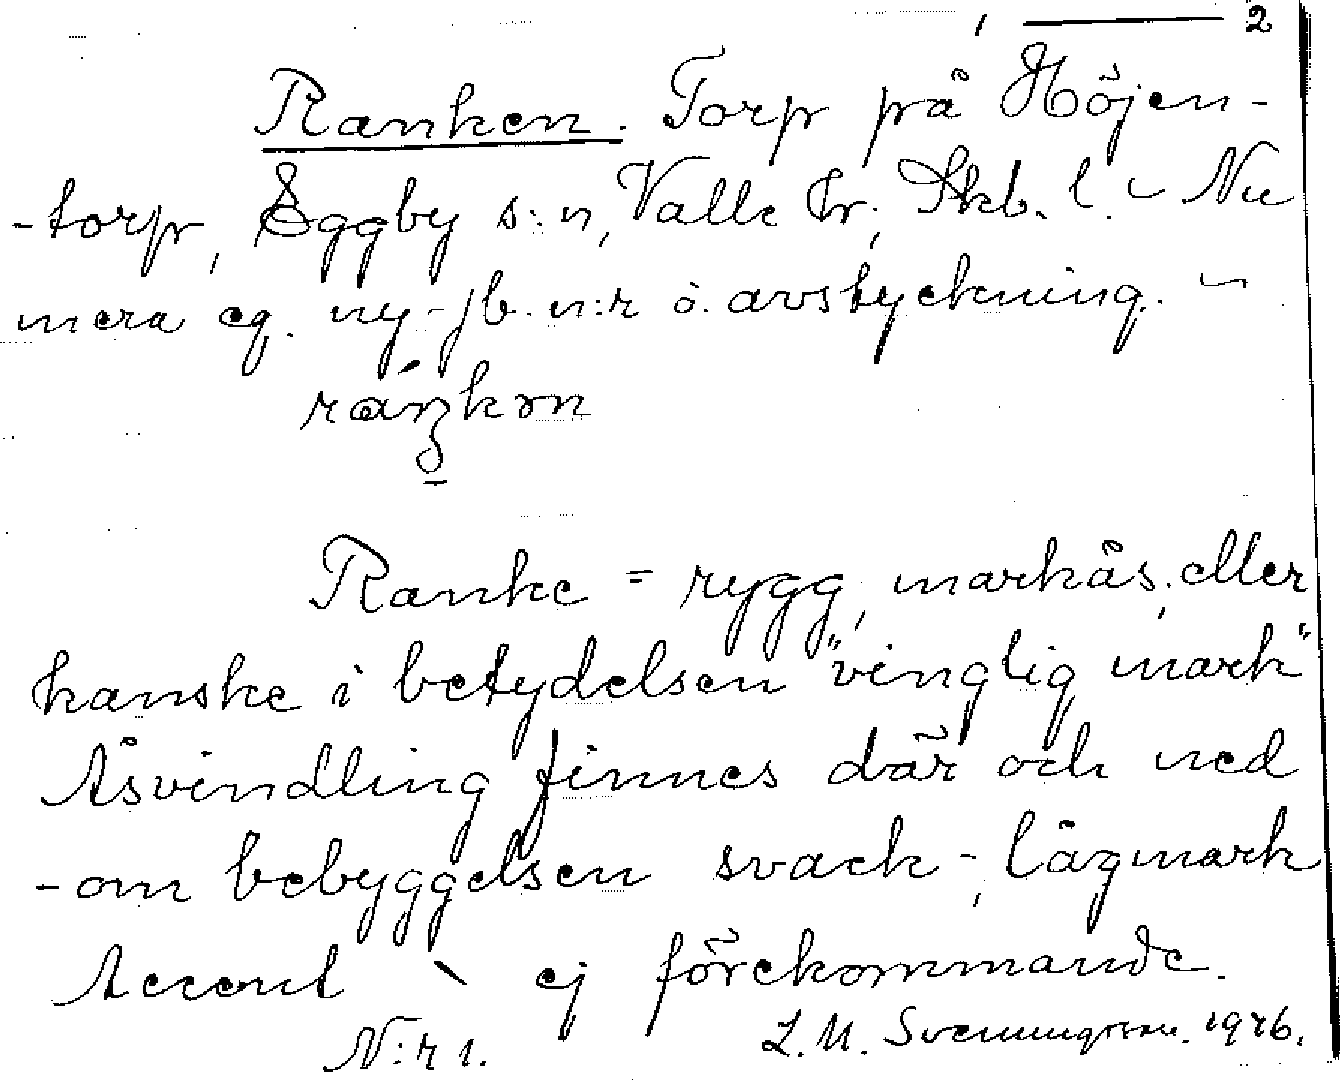 2
Ranken. Torp på Höjen-
-torp, Eggby s:n, Valle hr; Skb. l. – Nu
mera eg. ny-jb. n:r o. avstyckning. –
Ranke = rygg, markås, eller
kanske i betydelsen "vinglig mark"
Åsvindling finnes där och ned
-om bebyggelsen svack-, lägmark
Accent \ ej förekommande.
N:r 1. L. M. Svenungsson. 1946.